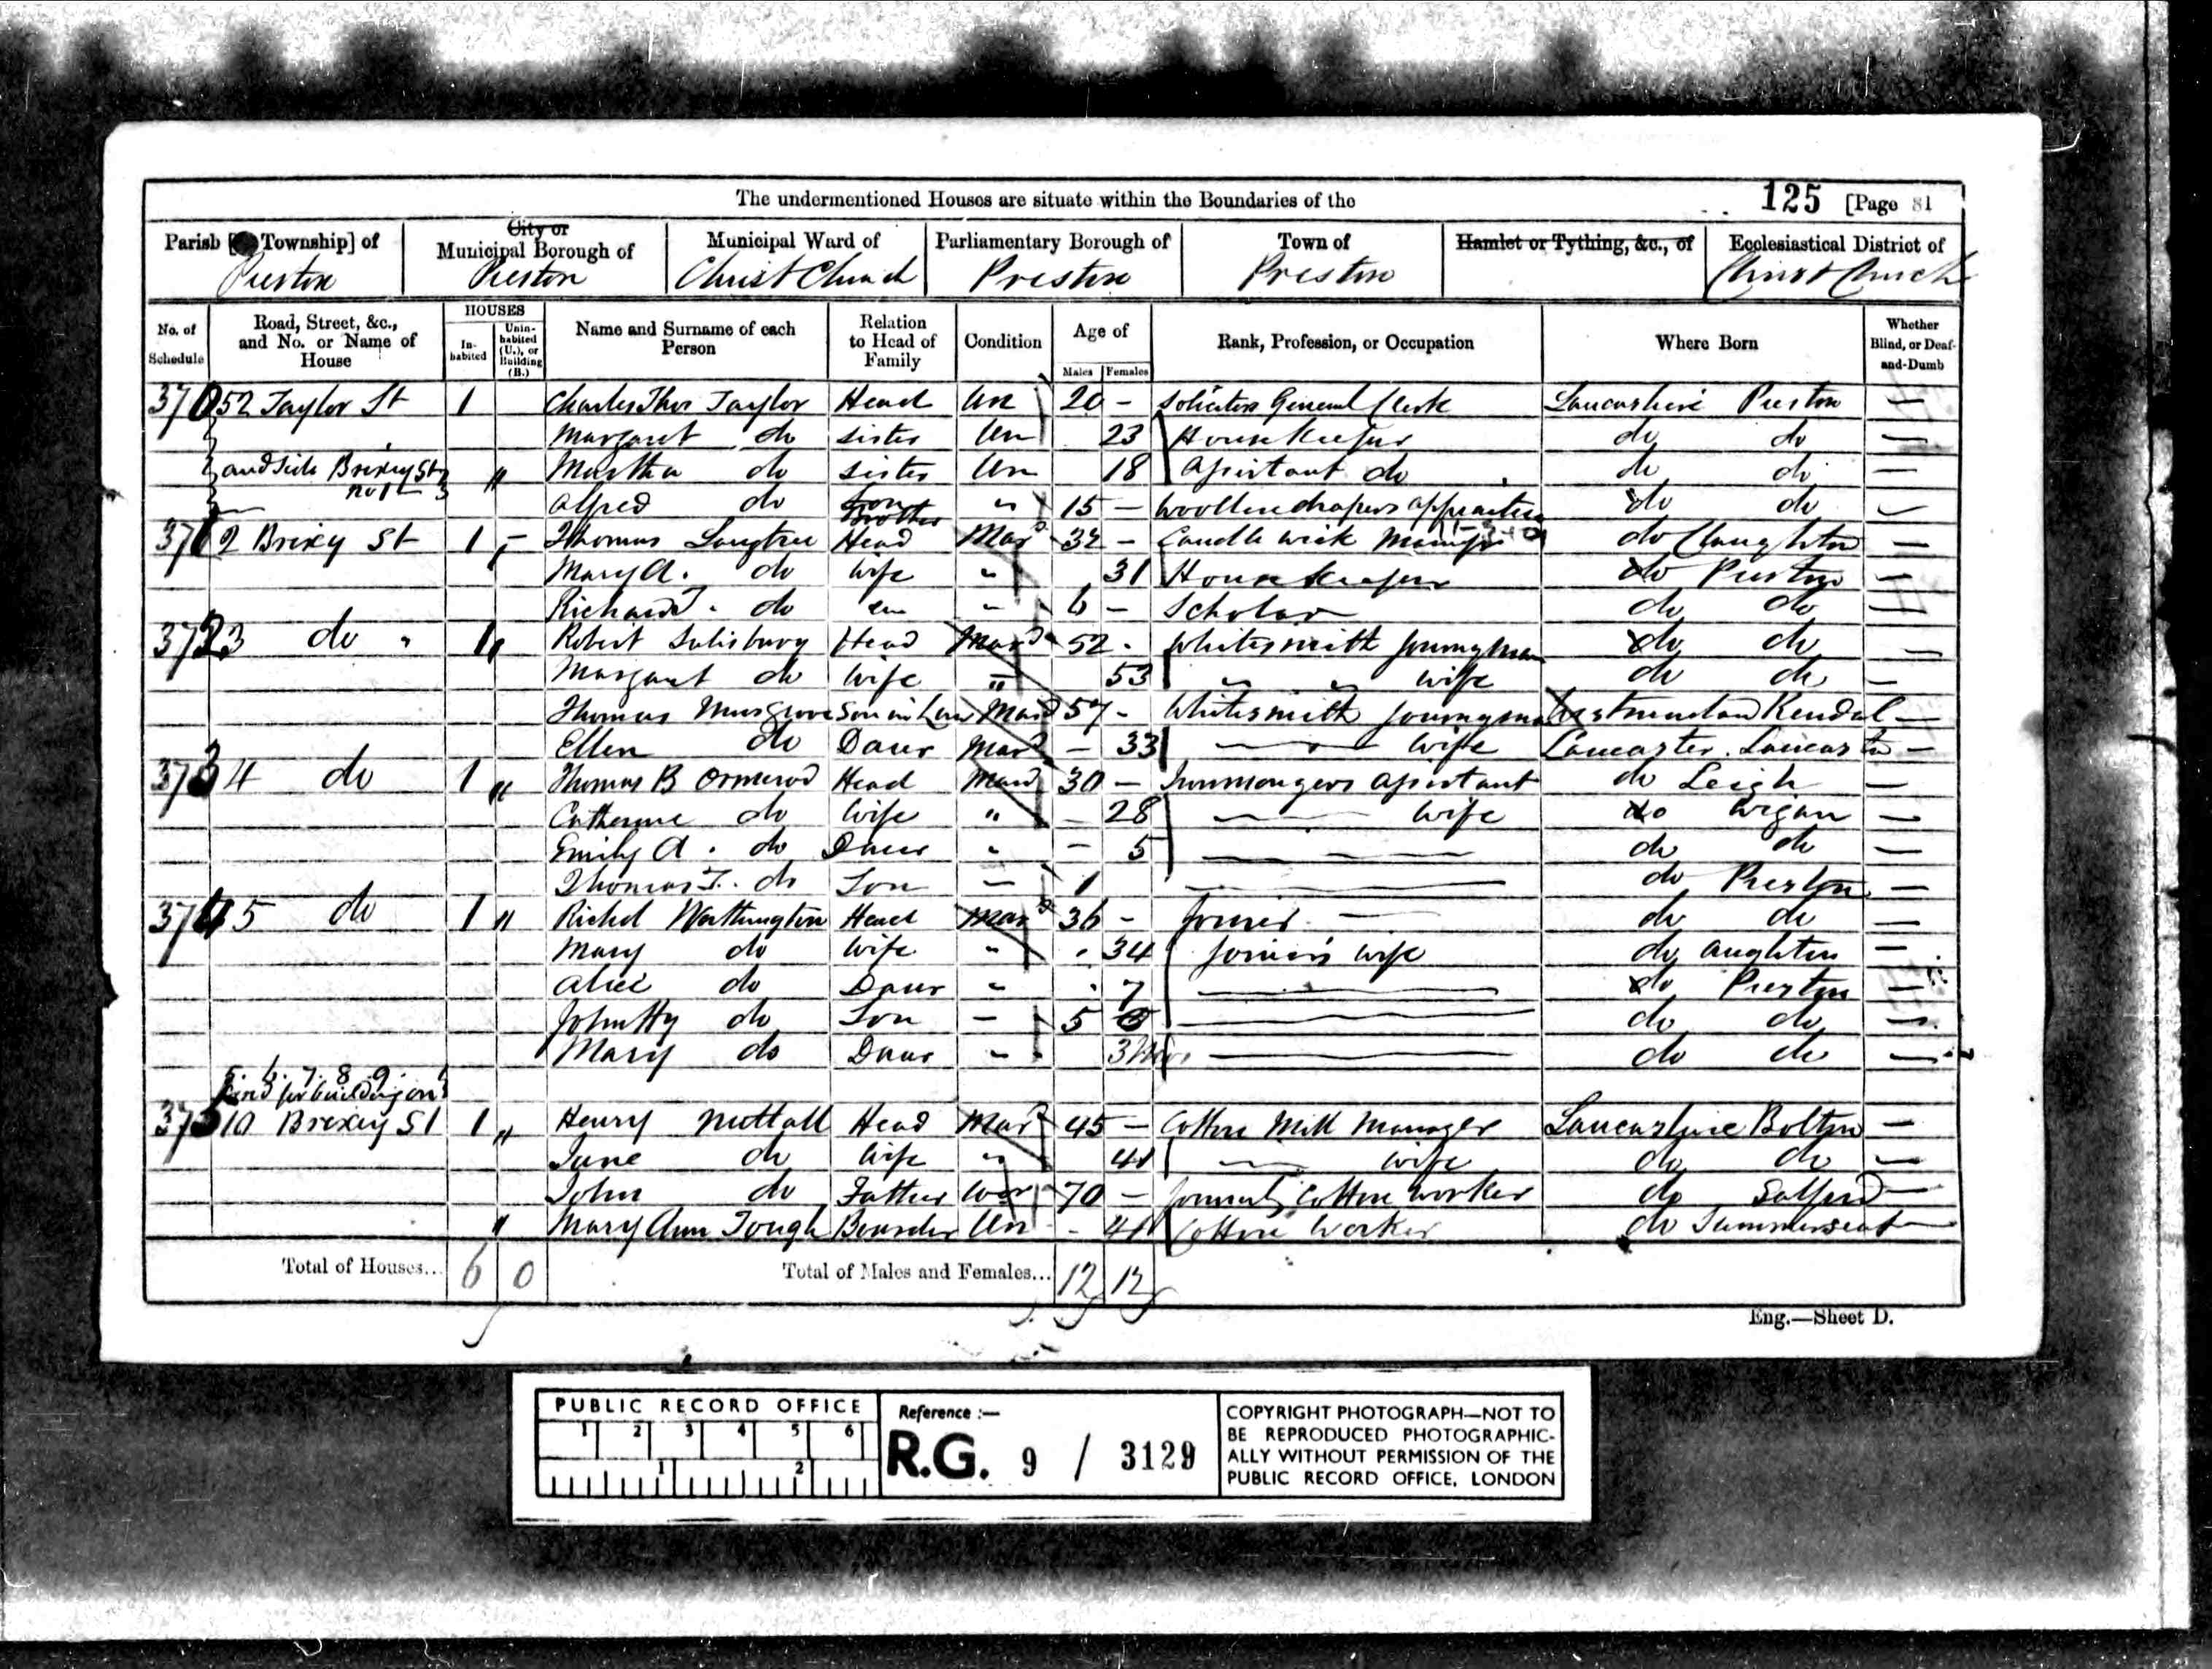 The undermentioned Houses are situate within the Boundaries of the
125 [Page 81
Parish [ Township] of Preston
City or Municipal Borough of Preston
Municipal Ward of Christ Church
Parliamentary Borough of Preston
Town of Preston
Hamlet or Tything, &c., of
Ecclesiastical District of Christ Church
No. of Schedule
Road, Street, &c., and No. or Name of House
HOUSES
In-habited
Unin-habited (U.), or Building (B.)
Name and Surname of each Person
Relation to Head of Family
Condition
Age of
Males Females
Rank, Profession, or Occupation
Where Born
Whether Blind, or Deaf-and-Dumb
370 52 Taylor St 1 Charles Thos Taylor Head Un 20 - Solicitors General Clerk Lancashire Preston —
Margaret do Sister Un 23 Housekeeper do do —
and side Brixey St no 1 " Martha do Sister Un 18 Assistant do do do —
Alfred do Son Brother " 15 - Woollendrapers apprentice do do —
371 2 Brixy St 1 Thomas Longtree Head Mard 32 - Candle wick do Claughton —
Mary A. do Wife " 31 Housekeeper do Preston —
Richard T. do " 6 - Scholar do do —
372 3 do " 1 " Robert Salisbury Head Mard 52 - Whitesmith Journeyman do do —
Margaret do Wife " 53 " " wife do do —
Thomas Musgrove Son in Law Mard 57 - Whitesmith Journeyman Westmorland Kendal —
Ellen do Daur Mard - 33 — wife Lancaster. Lancaster —
373 4 do 1 " Thomas B Ormerod Head Mard 30 - Ironmongers Assistant do Leigh —
Catherine do Wife " - 28 — wife do Wigan —
Emily A. do Daur " - 5 — do do —
Thomas J. do Son — 1 — do Preston —
374 5 do 1 " Richd Worthington Head Mard 36 - Joiner — do do —
Mary do Wife " 34 Joiner's wife do Aughton —
Alice do Daur " 7 — do Preston —
John Hy do Son — 5 — do do —
Mary do Daur " 3 Mos — do do —
5. 6. 7. 8. 9.
Land for building on
375 10 Brixey St 1 " Henry Nuttall Head Mard 45 - Cotton Mill Manager Lancashire Bolton —
Jane do Wife " 41 — wife do do —
John do Father Wdr 70 - formerly Cotton worker do Salford —
" Mary Ann Tough Boarder Un - 41 Cotton worker do Summerseat —
Total of Houses... 6 0 Total of Males and Females... 12 13
Eng.—Sheet D.
PUBLIC RECORD OFFICE
1 2 3 4 5 6
1 2
Reference :—
R.G. 9 / 3129
COPYRIGHT PHOTOGRAPH—NOT TO
BE REPRODUCED PHOTOGRAPHIC-
ALLY WITHOUT PERMISSION OF THE
PUBLIC RECORD OFFICE, LONDON